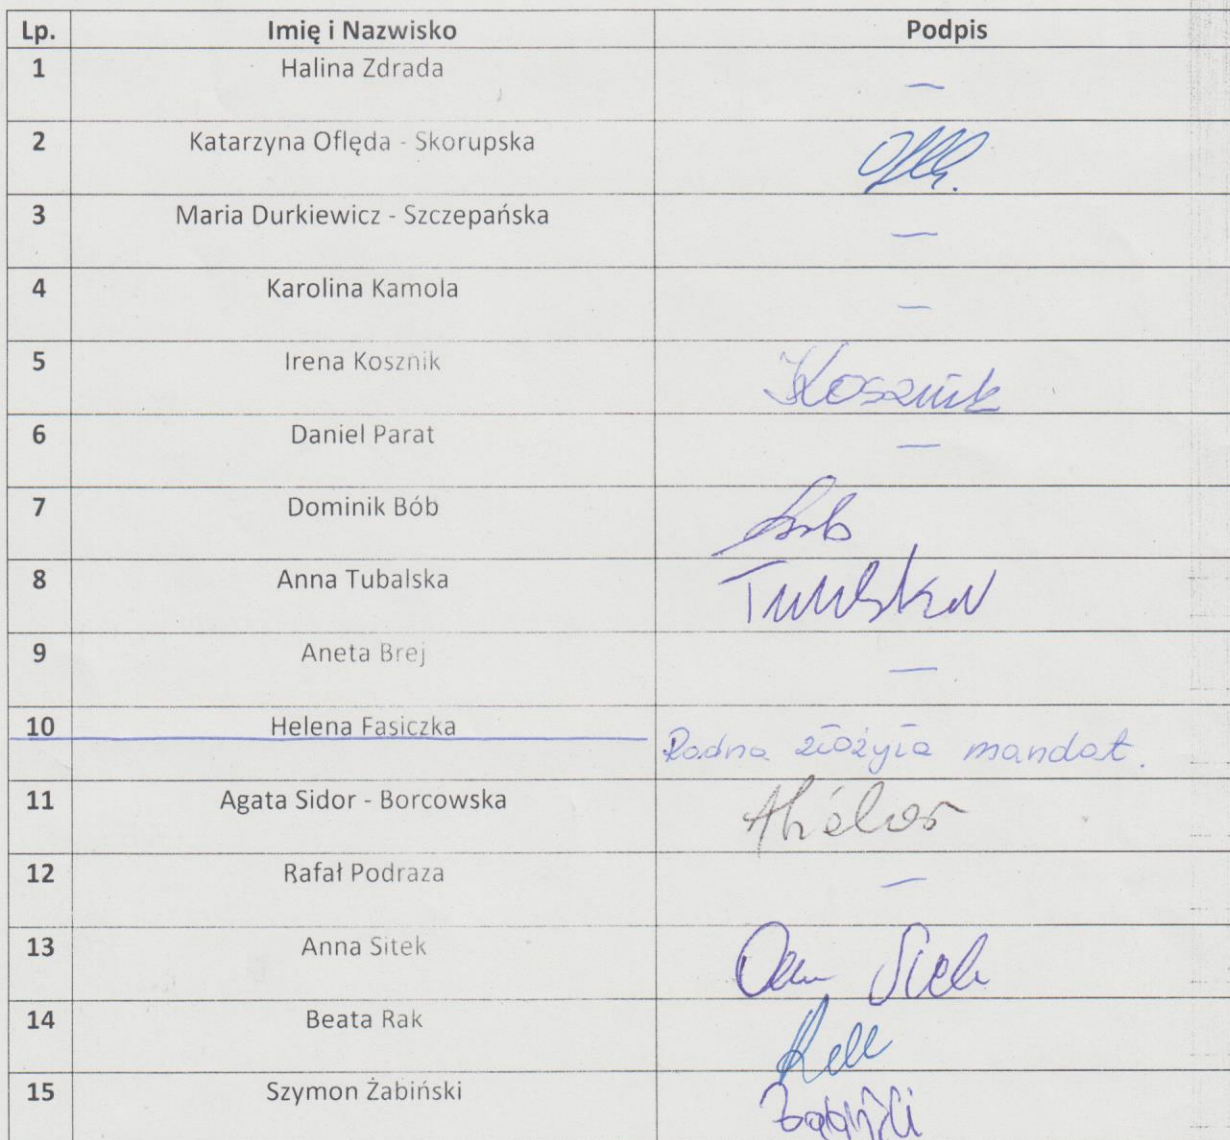 Lp. Imię i Nazwisko Podpis
1 Halina Zdrada —
2 Katarzyna Oflęda - Skorupska
3 Maria Durkiewicz - Szczepańska —
4 Karolina Kamola —
5 Irena Kosznik IKosznik
6 Daniel Parat —
7 Dominik Bób
8 Anna Tubalska
9 Aneta Brej —
10 Helena Fasiczka Radna złożyła mandat.
11 Agata Sidor - Borcowska
12 Rafał Podraza —
13 Anna Sitek
14 Beata Rak
15 Szymon Żabiński